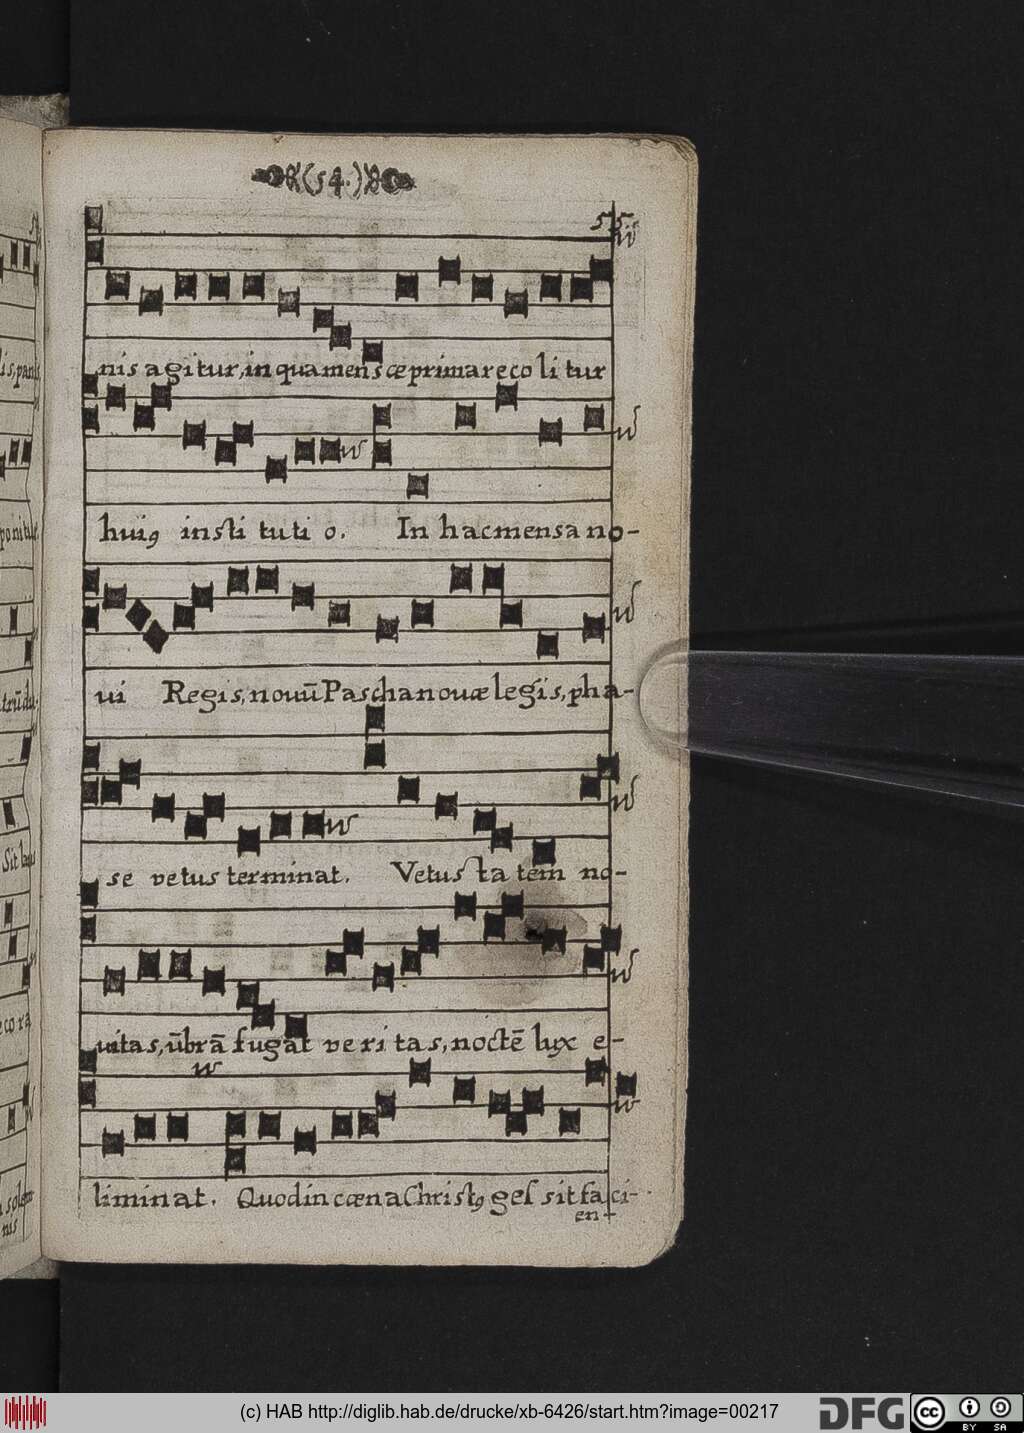 (54.)
55
nis agitur, in qua mensæ prima recolitur
huiꝰ instituti o. In hac mensa no-
ui Regis, nouū Pascha nouæ legis, pha-
se vetus terminat. Vetustatem no-
uitas, ūbrā fugat veritas, noctē lux e-
liminat. Quod in cœna Christꝰ gessit faci-
en-
(c) HAB http://diglib.hab.de/drucke/xb-6426/start.htm?image=00217
DFG
cc
BY SA